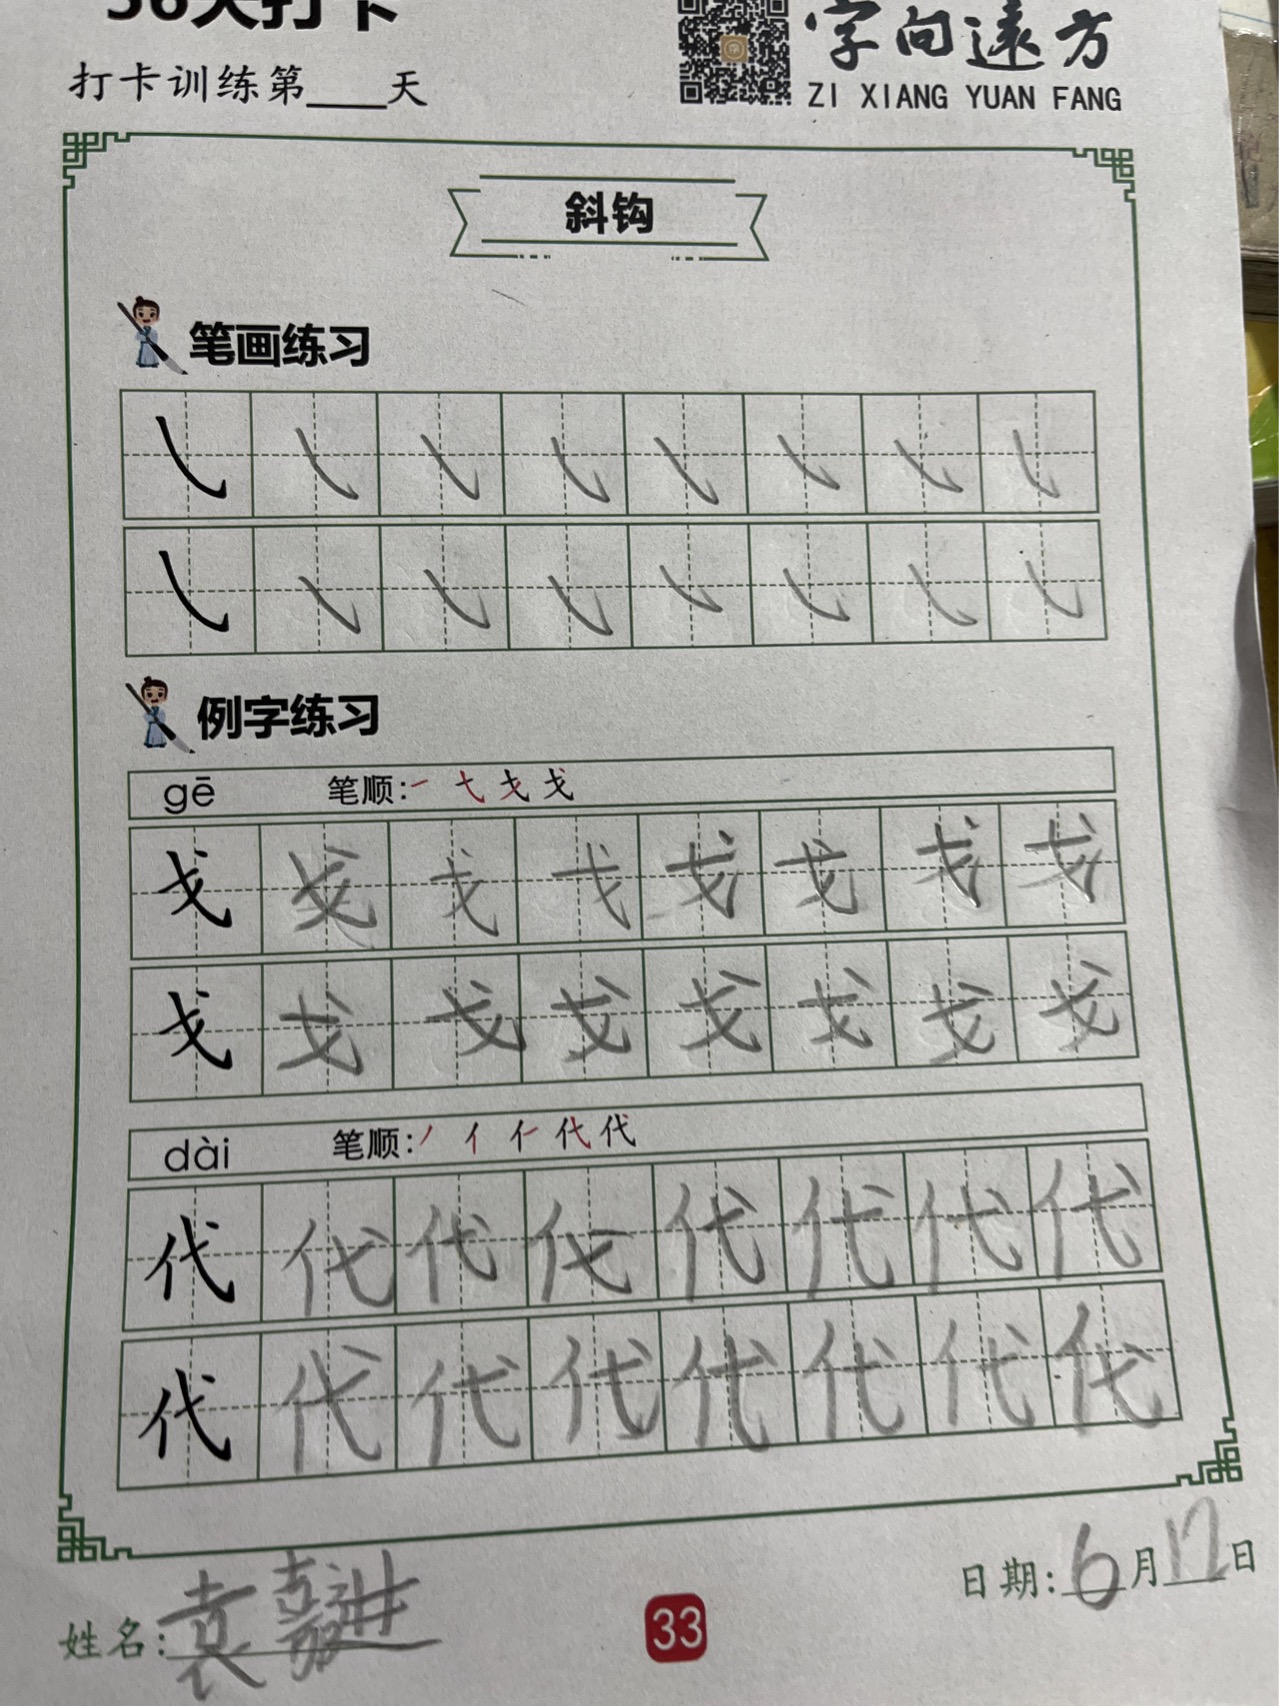 天打卡
字向遠方
打卡训练第____天
ZI XIANG YUAN FANG
斜钩
笔画练习
㇂ ㇂ ㇂ ㇂ ㇂ ㇂ ㇂ ㇂
㇂ ㇂ ㇂ ㇂ ㇂ ㇂ ㇂ ㇂
例字练习
gē 笔顺:
戈 戈 戈 戈 戈 戈 戈 戈
戈 戈 戈 戈 戈 戈 戈 戈
dài 笔顺:
代 代 代 代 代 代 代 代
代 代 代 代 代 代 代 代
日期:6月12日
姓名:袁嘉进
33